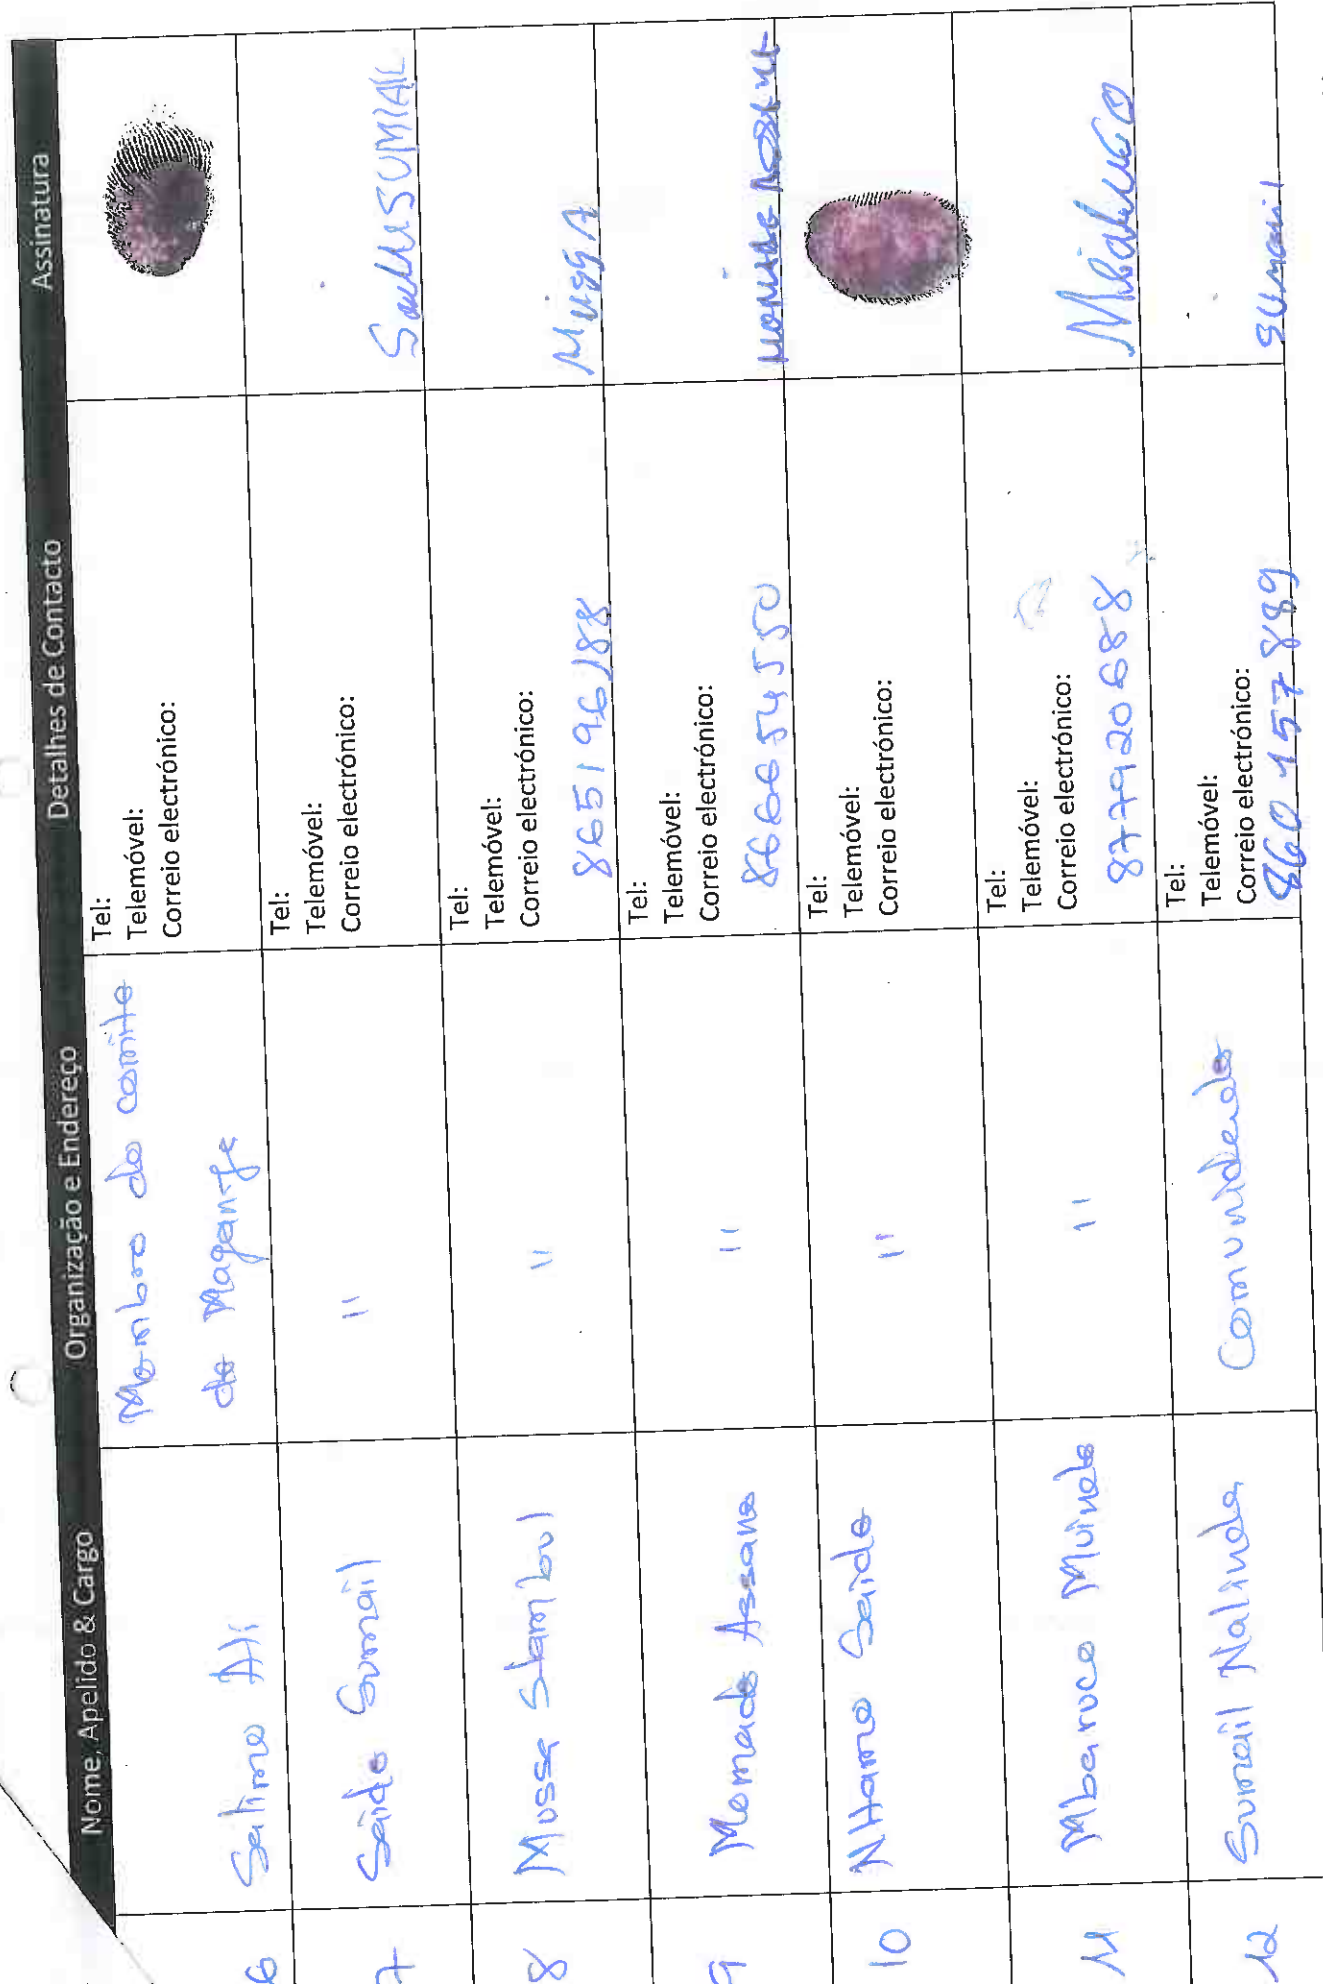 Nome, Apelido & Cargo Organização e Endereço Detalhes de Contacto Assinatura
6 Salimo Ali Membro do comite de Maganja Tel:
Telemóvel:
Correio electrónico:
7 Saido Sumail 11 Tel:
Telemóvel:
Correio electrónico:
Saide SUMIAIL
8 Mussa Stambul 11 Tel:
Telemóvel:
Correio electrónico:
865196188
Mussa
9 Momade Assane 11 Tel:
Telemóvel:
Correio electrónico:
866654550
10 NHamo Saide 11 Tel:
Telemóvel:
Correio electrónico:
11 Mbaruco Muinde 11 Tel:
Telemóvel:
Correio electrónico:
877920688
12 Sumail Nalinda Comunidade Tel:
Telemóvel:
Correio electrónico:
860457889
Sumail